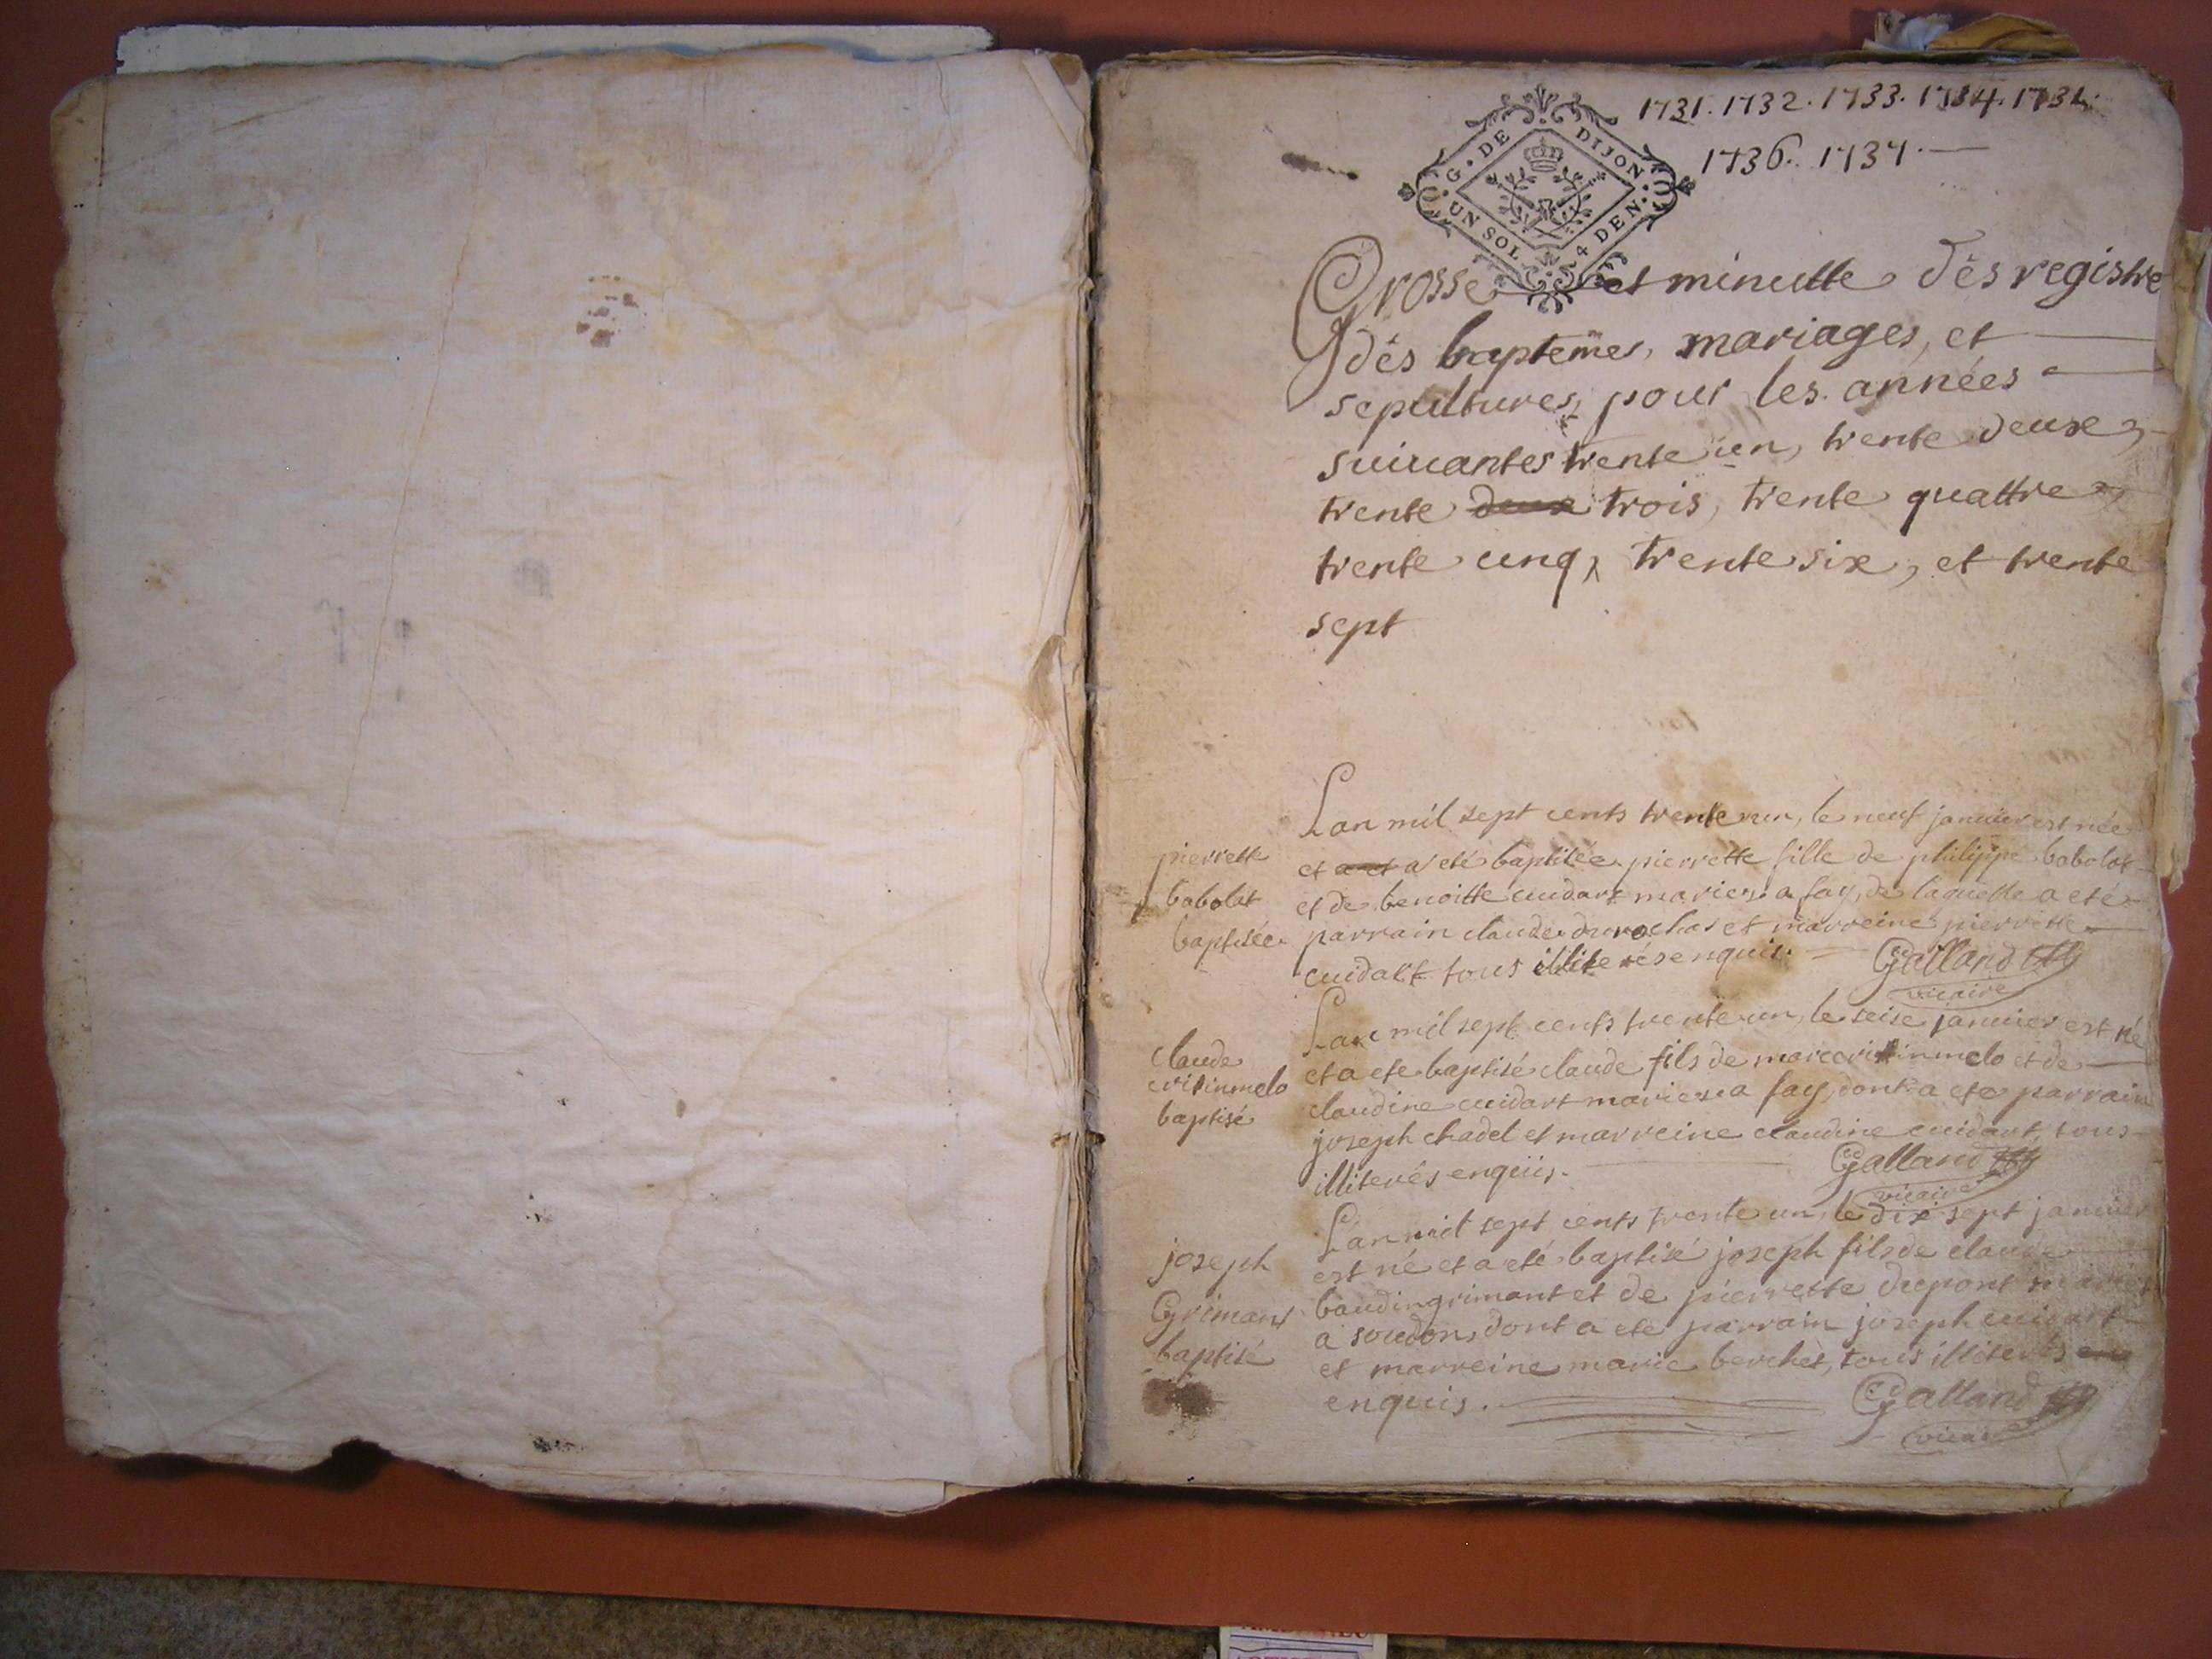 1731. 1732. 1733. 1734. 1735.
1736. 1737.
G. DE DIJON
UN SOL 4 DEN.
Grosse et minutte dès registre
dès baptemes, mariages, et
sepultures, pour les années
suivantes trente un, trente deux,
trente deux trois, trente quattre,
trente cinq, trente six, et trente
sept
pierrette
bobolat
baptisée
Lan mil sept cents trente un, le neuf janvier est née
et a eté baptisée pierrette fille de philippe bobolat
et de benoitte cuidart mariez a fay, de laquelle a eté
parrain claude durochas et marreine pierrette
cuidart tous illiterés enquis. Galland
vicaire
claude
baptisé
Lan mil sept cents trente un, le seise janvier est né
et a eté baptisé claude fils de et de
claudine cuidart mariez a fay, dont a eté parrain
joseph chadel et marreine claudine cuidart, tous
illiterés enquis. Galland
vicaire
joseph
Grimant
baptisé
Lan mil sept cents trente un, le dix sept janvier
est né et a eté baptisé joseph fils de claude
baudin grimant et de pierrette dupont mariés
a soudon, dont a eté parrain joseph cuidart
et marreine marie berchet, tous illiterés
enquis. Galland
vicaire